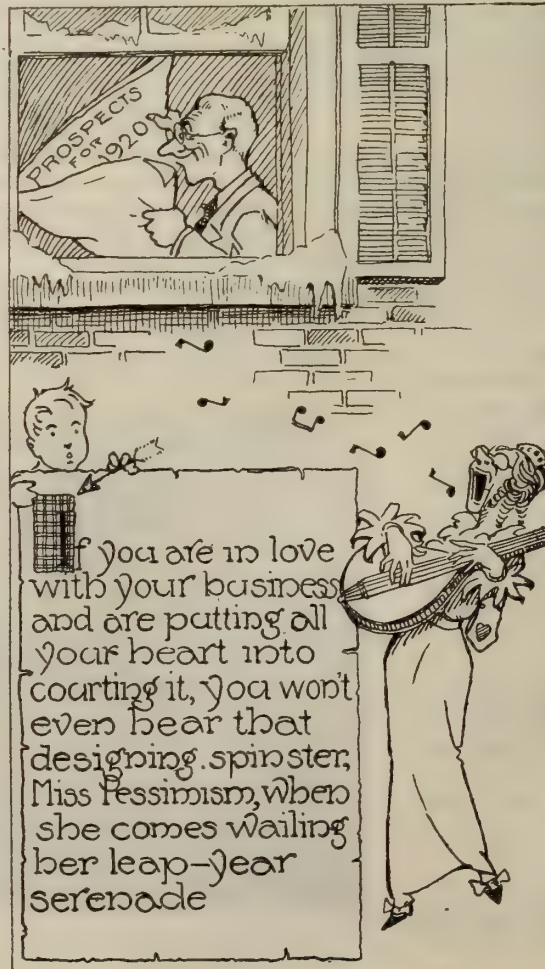 PROSPECTS
FOR
1920
If you are in love
with your business
and are putting all
your heart into
courting it, you won't
even hear that
designing spinster,
Miss Pessimism, when
she comes wailing
her leap-year
serenade